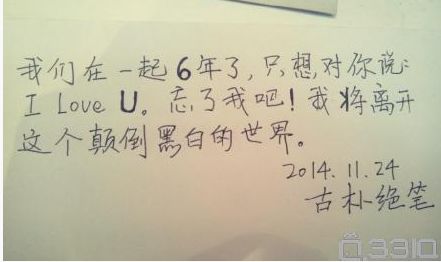 我们在一起6年了，只想对你说：
I Love U。忘了我吧！我将离开
这个颠倒黑白的世界。
2014.11.24
古朴绝笔
3310